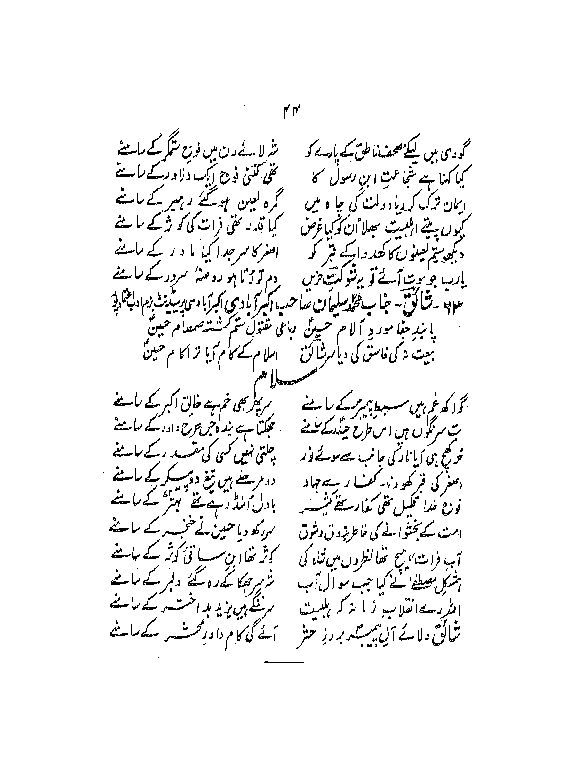 ۴۴
گودی میں لیکے مصحف ناطق کے پارے کو شہ لائے رن میں فوج ستمگر کے سامنے
کیا کہنا ہے شجاعتِ ابنِ رسول کا تھی کتنی فوج ایک دلاور کے سامنے
ایمان ترک کر دیا دولت کی چاہ میں گمرہ لعین ہو گئے رہبر کے سامنے
کیوں پیتے اہلبیت بھلا ان کو کیا غرض کیا قدر تھی فرات کی کوثر کے سامنے
دیکھو ستم لعینوں کا کھودا کے قبر کو اصغر کا سر جدا کیا مادر کے سامنے
یارب جو موت آئے تو یہ شوکتِ حزیں دم توڑتا ہو روضۂ سرور کے سامنے
۶۴۔ شائق۔ جناب محمد سلیمان صاحب اکبرآبادی
پابندِ جفا موردِ آلام حسینؑ رباعی مقتولِ ستم کشتۂ صمصام حسینؑ
بیعت نہ کی فاسق کی دیا سر شائق اسلام کے کام آیا ترا کام حسینؑ
سلام
گو لاکھ غم ہیں سبطِ پیمبر کے سامنے سر پھر بھی خم ہے خالقِ اکبر کے سامنے
سرنگوں ہیں اس طرح حیدر کے سامنے جھکتا ہے بندہ جس طرح داور کے سامنے
حُر کھنچ ہی آیا نار کی جانب سے سوئے نور چلتی نہیں کسی کی مقدر کے سامنے
اصغر کی قبر کھودنا۔ کفار سے جہاد دو مرحلے ہیں تیغِ دو پیکر کے سامنے
فوجِ خدا قلیل تھی کفار تھے کثیر بادل امنڈ رہے تھے بہتّر کے سامنے
امت کے بخشوانے کی خاطر بذوق و شوق سر رکھ دیا حسین نے خنجر کے سامنے
آبِ فرات ہیچ تھا نظروں میں شاہ کی کوثر تھا ابنِ ساقیِ کوثر کے سامنے
ہمشکلِ مصطفےٰ نے کیا جب سوالِ آب شہ سر جھکا کے رہ گئے دلبر کے سامنے
اللہ رے انقلابِ زمانہ کہ اہلبیت سرننگے ہیں یزیدِ بداختر کے سامنے
شائق ولائے آلِ پیمبر بروزِ حشر آئے گی کام داورِ محشر کے سامنے